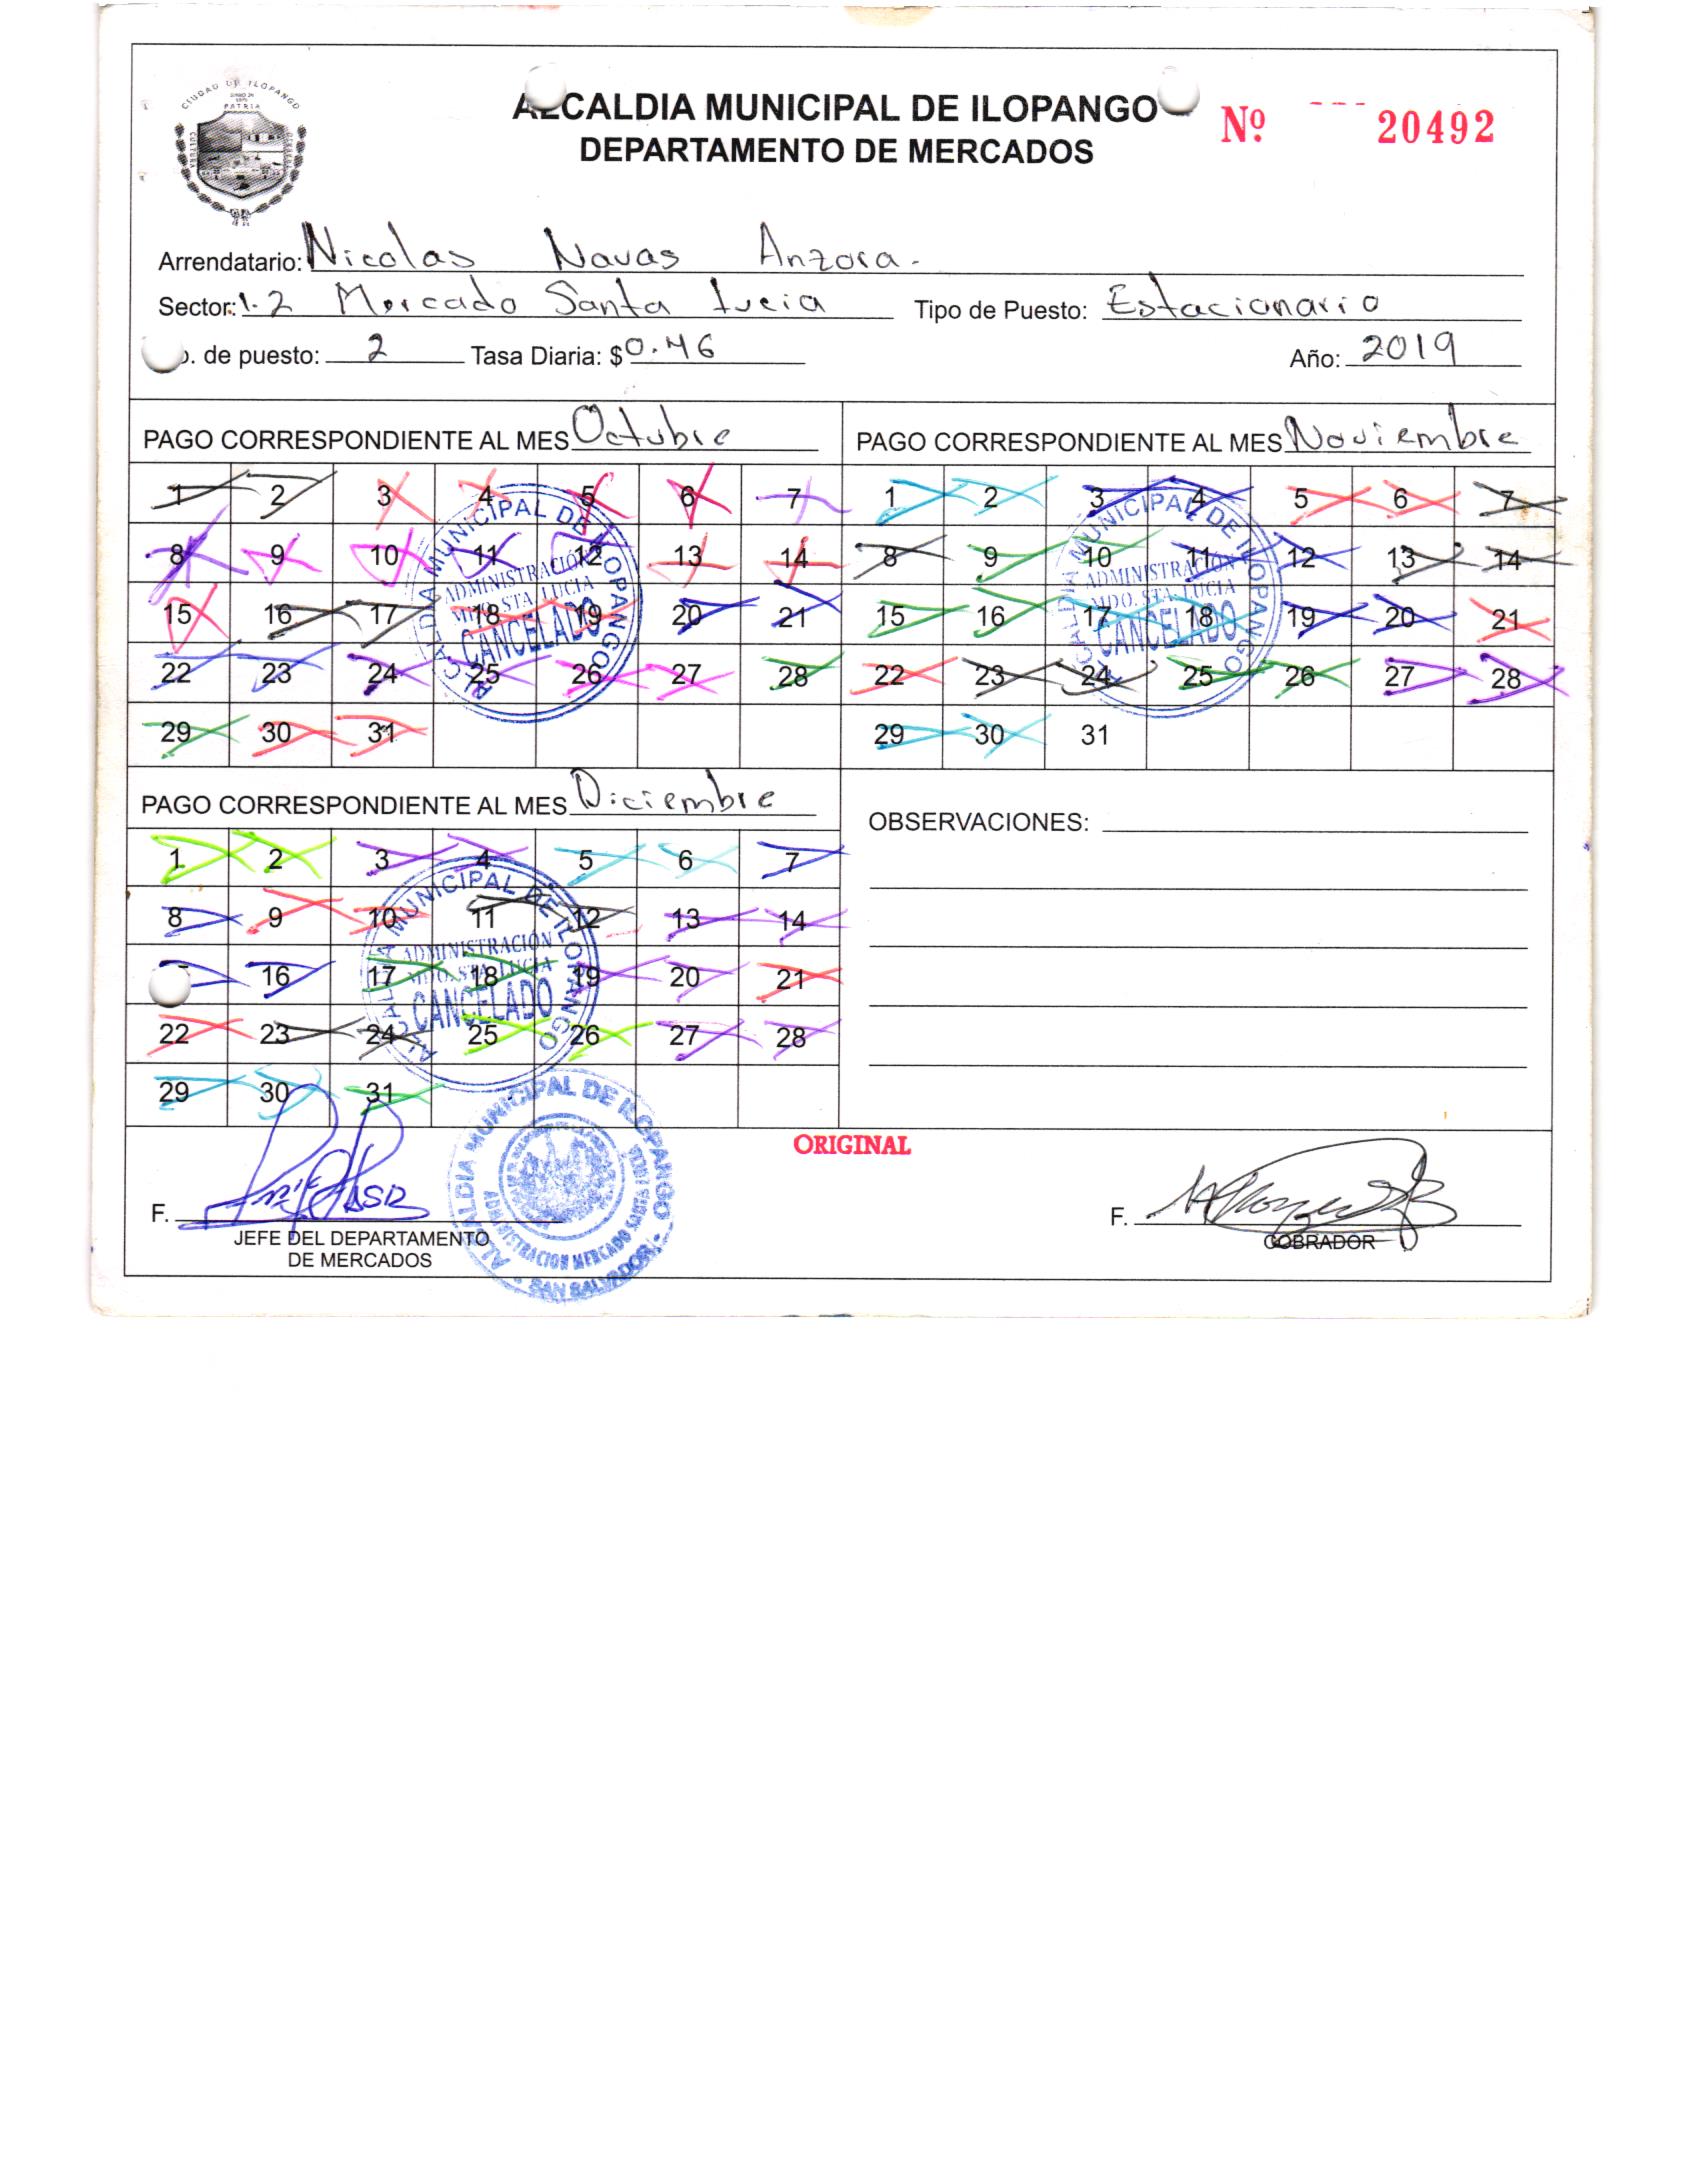 CIUDAD DE ILOPANGO
PATRIA
CULTURA
ALCALDIA MUNICIPAL DE ILOPANGO
DEPARTAMENTO DE MERCADOS
Nº 20492
Arrendatario: Nicolas Navas Anzora.
Sector: 1.2 Mercado Santa Lucia Tipo de Puesto: Estacionario
. de puesto: 2 Tasa Diaria: $0.46 Año: 2019
PAGO CORRESPONDIENTE AL MES Octubre
1 2 3 4 5 6 7
8 9 10 11 12 13 14
15 16 17 18 19 20 21
22 23 24 25 26 27 28
29 30 31
ALCALDIA MUNICIPAL DE ILOPANGO
ADMINISTRACIÓN
MDO. STA. LUCIA
CANCELADO
PAGO CORRESPONDIENTE AL MES Noviembre
1 2 3 4 5 6 7
8 9 10 11 12 13 14
15 16 17 18 19 20 21
22 23 24 25 26 27 28
29 30 31
ALCALDIA MUNICIPAL DE ILOPANGO
ADMINISTRACIÓN
MDO. STA. LUCIA
CANCELADO
PAGO CORRESPONDIENTE AL MES Diciembre
1 2 3 4 5 6 7
8 9 10 11 12 13 14
16 17 18 19 20 21
22 23 24 25 26 27 28
29 30 31
ALCALDIA MUNICIPAL DE ILOPANGO
ADMINISTRACIÓN
MDO. STA. LUCIA
CANCELADO
OBSERVACIONES:
ORIGINAL
F.
JEFE DEL DEPARTAMENTO
DE MERCADOS
ALCALDIA MUNICIPAL DE ILOPANGO
ADMINISTRACION MERCADO
SAN SALVADOR
F.
COBRADOR